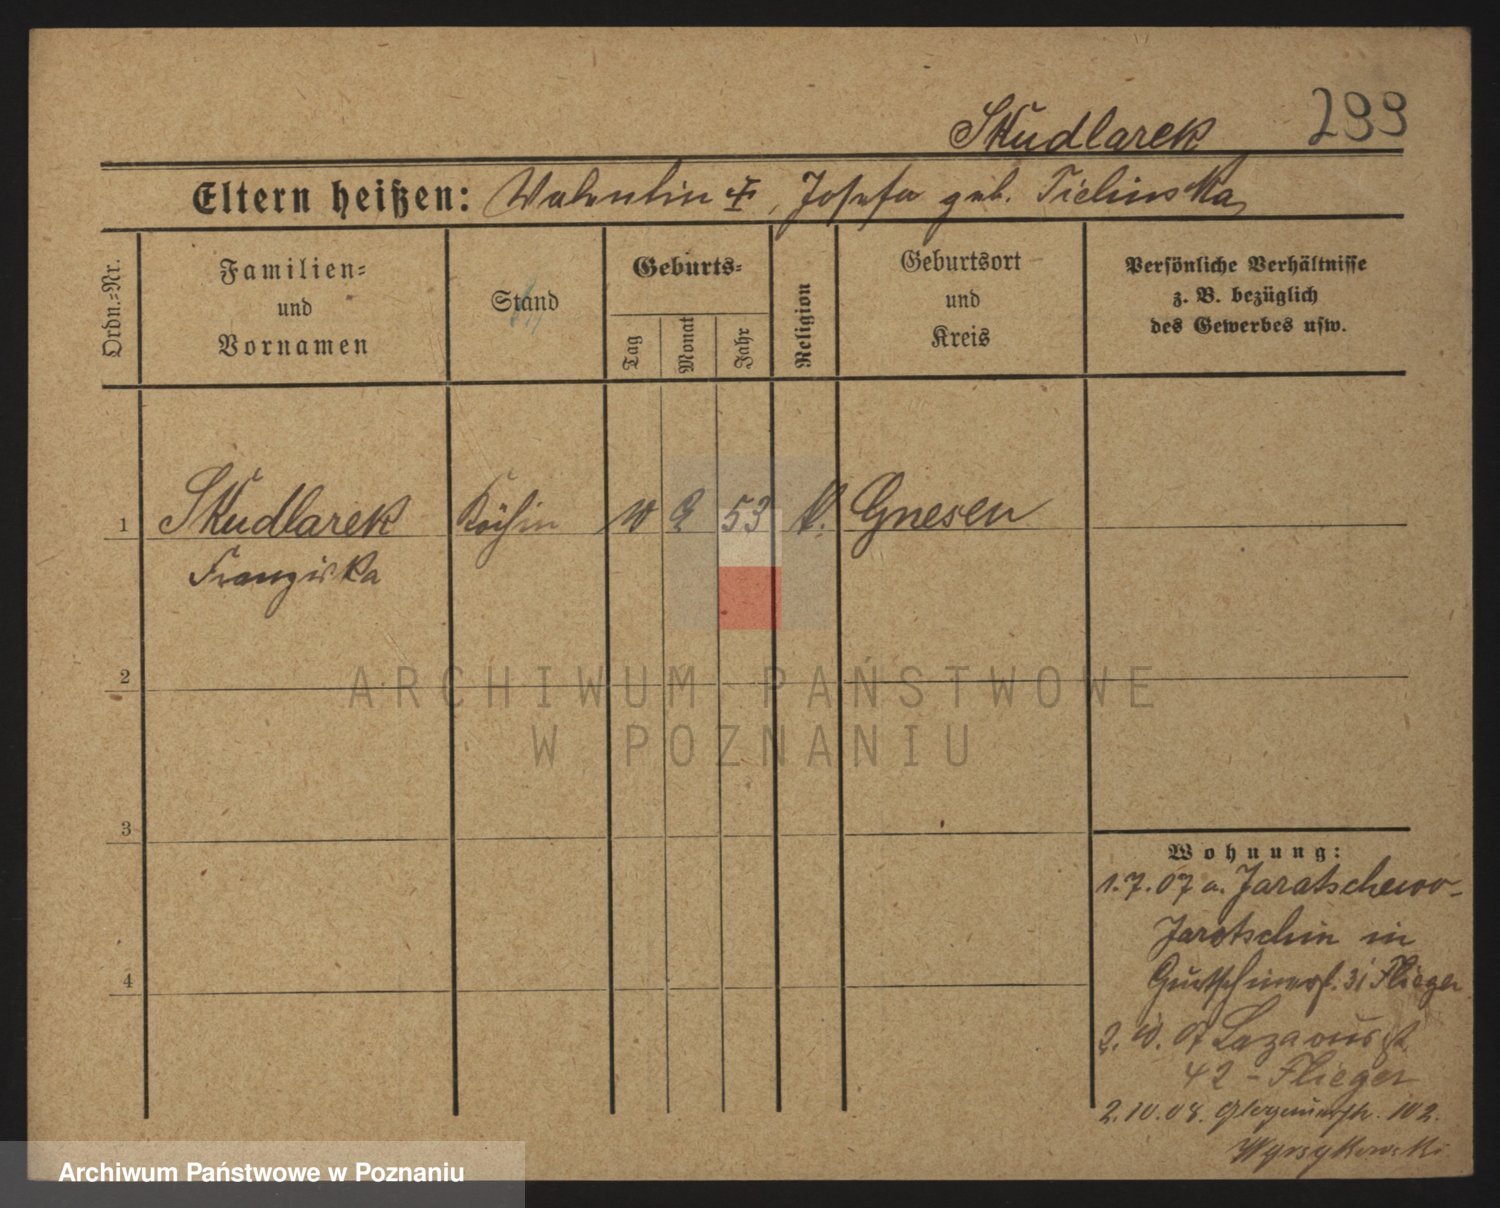 Skudlarek 299
Eltern heißen: Valentin ✝, Josefa geb. Zielinska
Ordn.=Nr.
Familien=
und
Vornamen
Stand
Geburts=
Tag
Monat
Jahr
Religion
Geburtsort
und
Kreis
Persönliche Verhältnisse
z. B. bezüglich
des Gewerbes usw.
1 Skudlarek Köchin 10 9 53 k. Gnesen
Franziska
2
3
4
Wohnung:
1.7.07 a. Jaratschewo-
Jarotschin in
31 Flieger
2. 10. 07 Lazarusst.
42 - Flieger
2.10.08. Glogauerstr. 102.
Wyrzykowski
ARCHIWUM PAŃSTWOWE
W POZNANIU
Archiwum Państwowe w Poznaniu